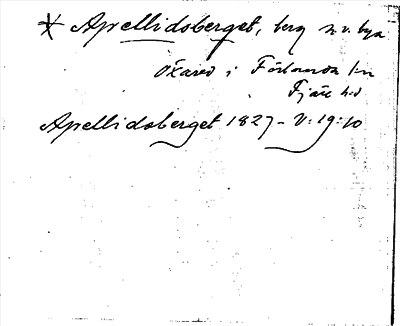 * Apellidsberget, berg n.v. bya
Oxared i Förlanda sn
Fjäre hd
Apellidsberget 1827 - V:19:10